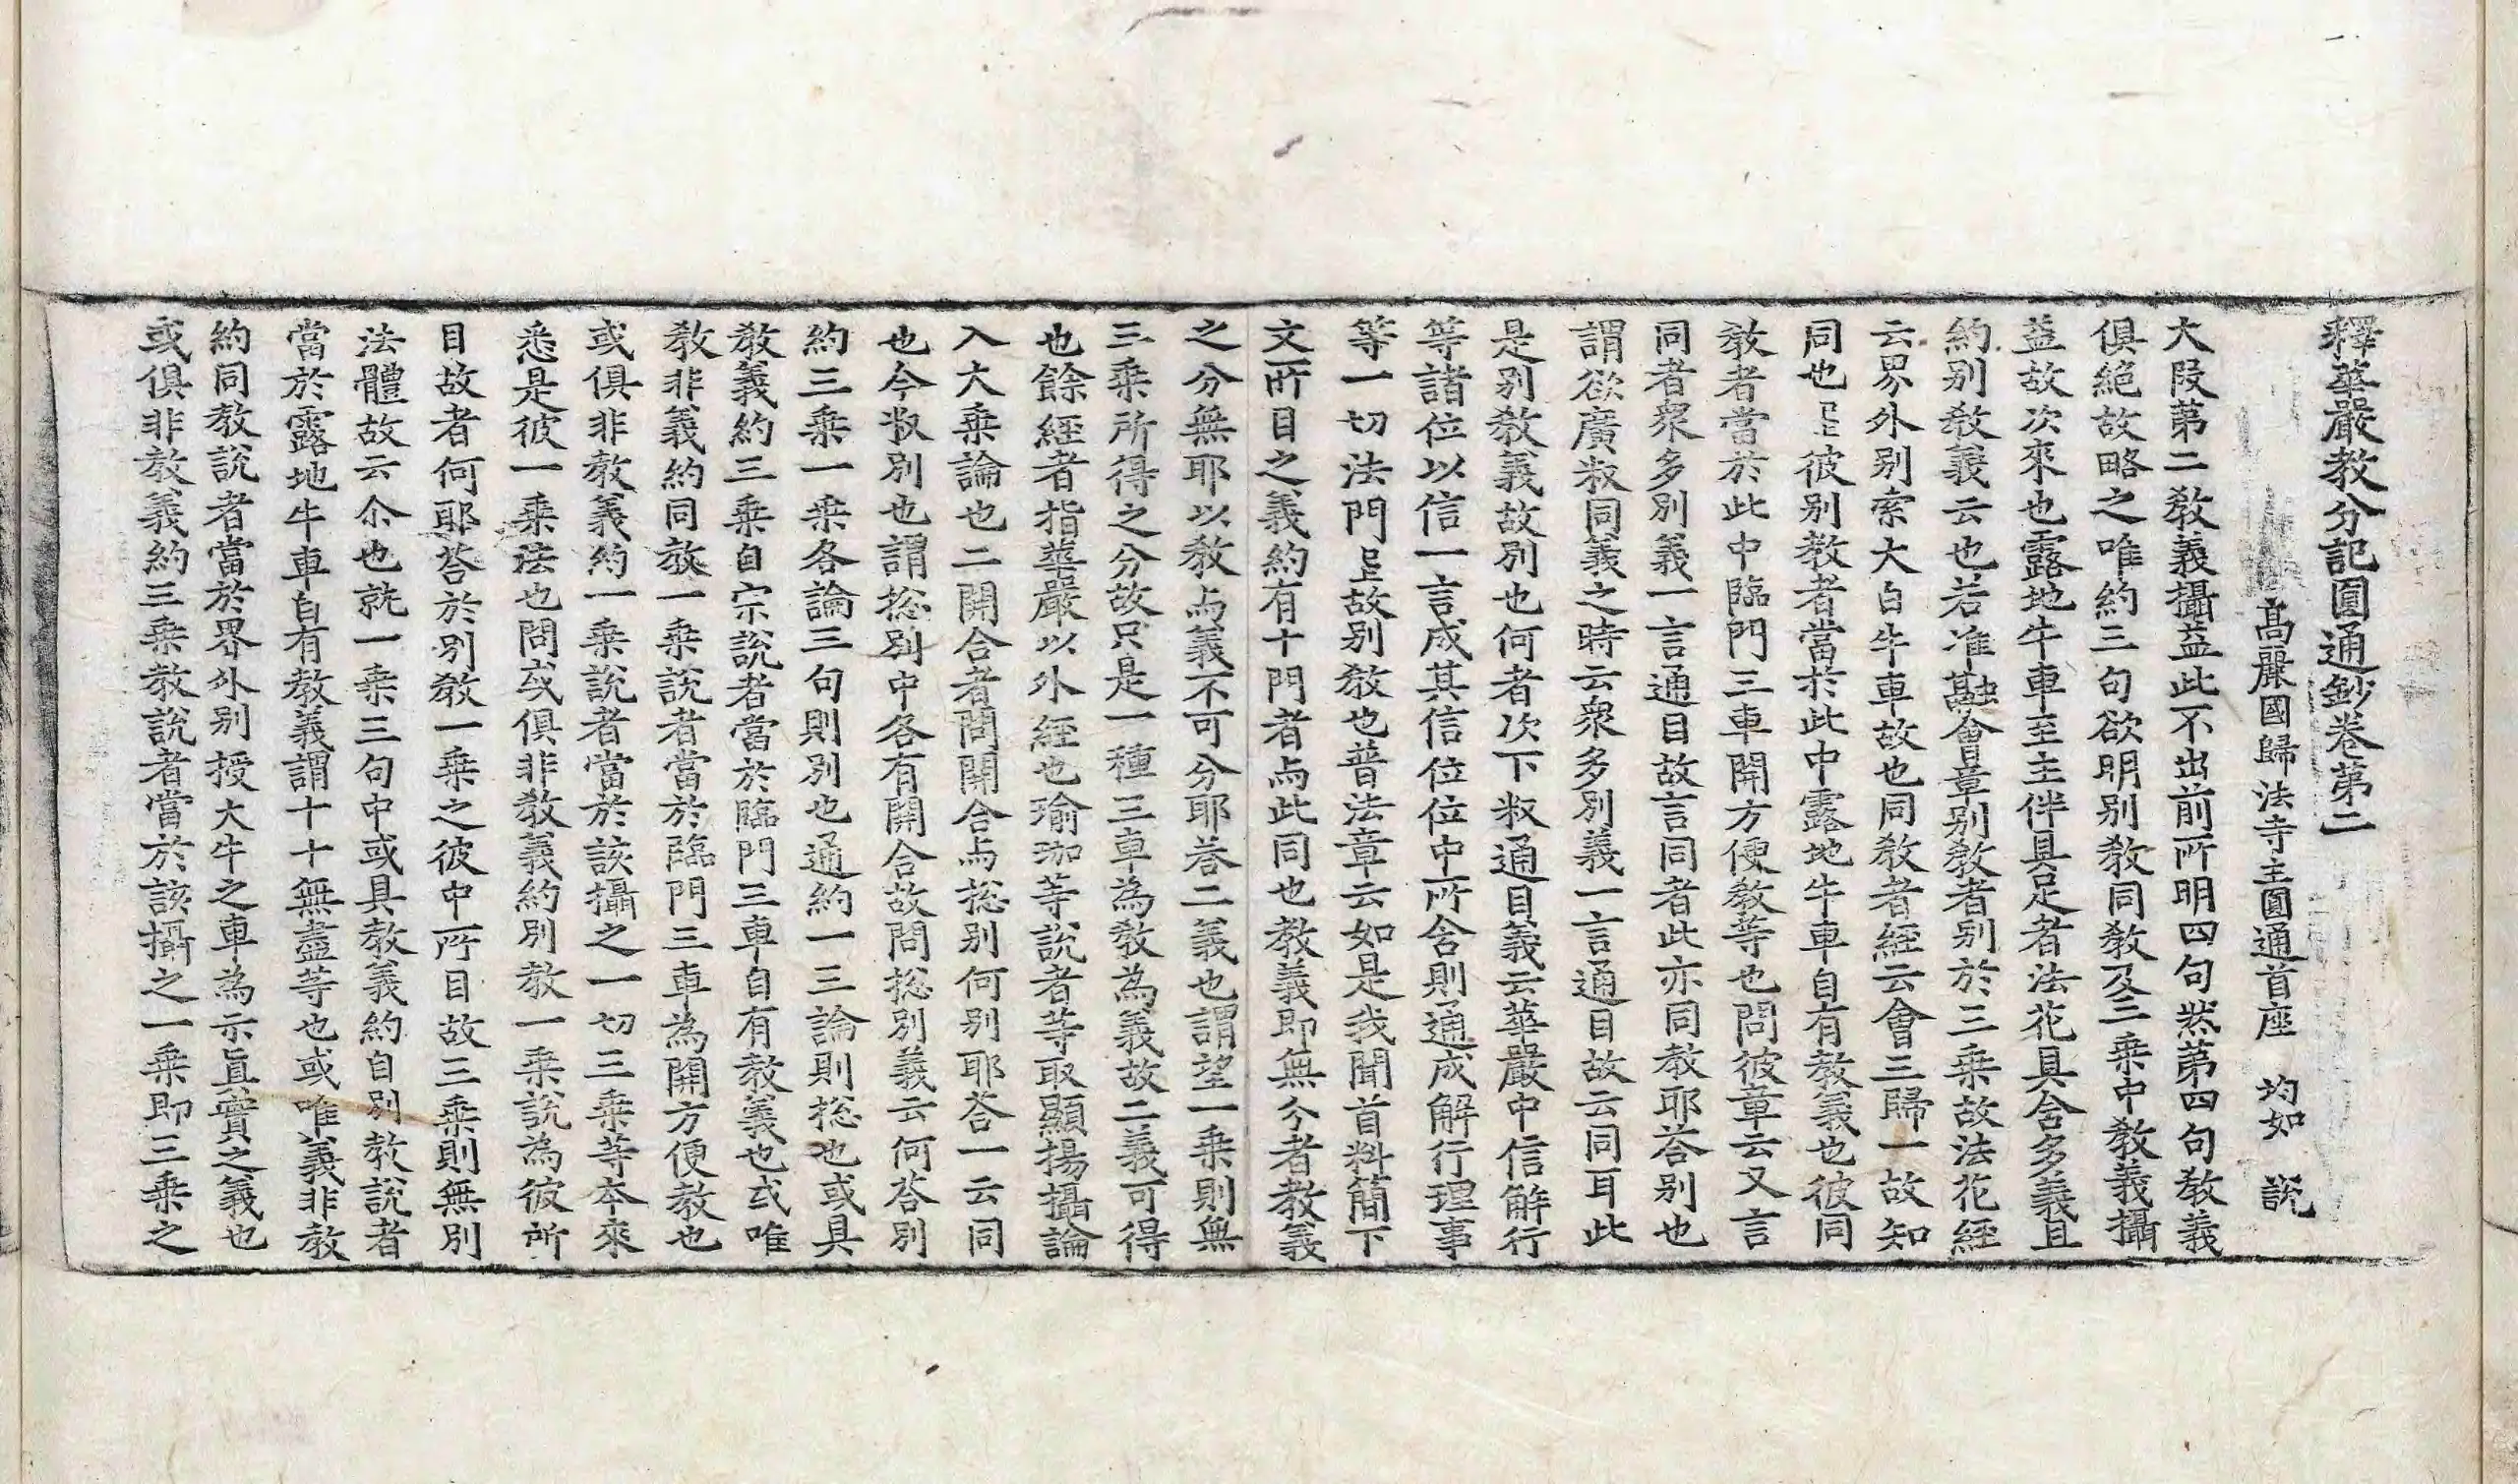 釋華嚴教分記圓通鈔卷第二
高麗國歸法寺主圓通首座 均如 說
大段第二教義攝益此不出前所明四句然第四句教義
俱絕故略之唯約三句欲明别教同教及三乘中教義攝
益故次來也露地牛車至主伴具足者法花具含多義且
約別教義云也若准融會章別教者別於三乘故法花經
云界外別索大白牛車故也同教者經云會三歸一故知
同也 彼別教者當於此中露地牛車自有教義也彼同
教者當於此中臨門三車開方便教等也問彼章云又言
同者衆多別義一言通目故言同者此亦同教耶荅別也
謂欲廣叙同義之時云衆多別義一言通目故云同耳此
是別教義故別也何者次下叙通目義云華嚴中信解行
等諸位以信一言成其信位位中所含則通成解行理事
等一切法門 故別教也普法章云如是我聞首料簡下
文所目之義約有十門者与此同也教義即無分者教義
之分無耶以教与義不可分耶荅二義也謂望一乘則無
三乘所得之分故只是一種三車為教為義故二義可得
也餘經者指華嚴以外經也瑜珈等說者等取顯揚攝論
入大乘論也二開合者問開合与揔別何別耶荅一云同
也今叙別也謂揔別中各有開合故問揔別義云何荅別
約三乘一乘各論三句則別也通約一三論則揔也或具
教義約三乘自宗說者當於臨門三車自有教義也或唯
教非義約同教一乘說者當於臨門三車為開方便教也
或俱非教義約一乘說者當於該攝之一切三乘等本來
悉是彼一乘法也問或俱非教義約別教一乘說為彼所
目故者何耶荅於別教一乘之彼中所目故三乘則無別
法體故云尒也就一乘三句中或具教義約自別教說者
當於露地牛車自有教義謂十十無盡等也或唯義非教
約同教說者當於界外別授大牛之車為示眞實之義也
或俱非教義約三乘教說者當於該攝之一乘即三乘之